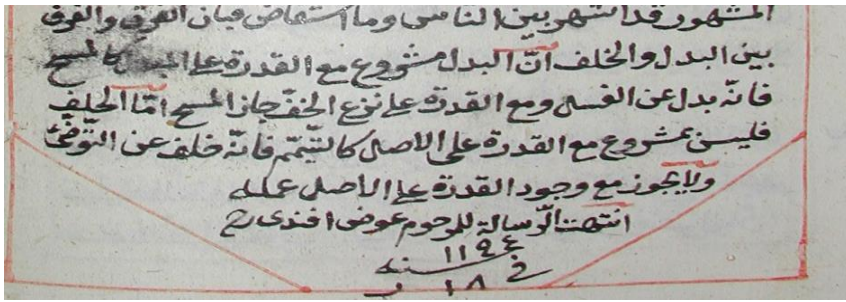 المشهور قد اشتهر بين الناس وما استفاض فبان الفرق والفرق
بين البدل والخلف انّ البدل مشروع مع القدرة على المبدل كالمسح
فانّه بدل عن الغسل ومع القدرة على نزع الخفّ جاز المسح امّا الخلف
فليس بمشروع مع القدرة على الاصل كالتيّمّم فانّه خلف عن التّوضّئ
ولا يجوز مع وجود القدرة على الاصل عمله
انتهت الرّسالة للمرحوم عوض افندى رح
سنه ١١٩٤
١٨